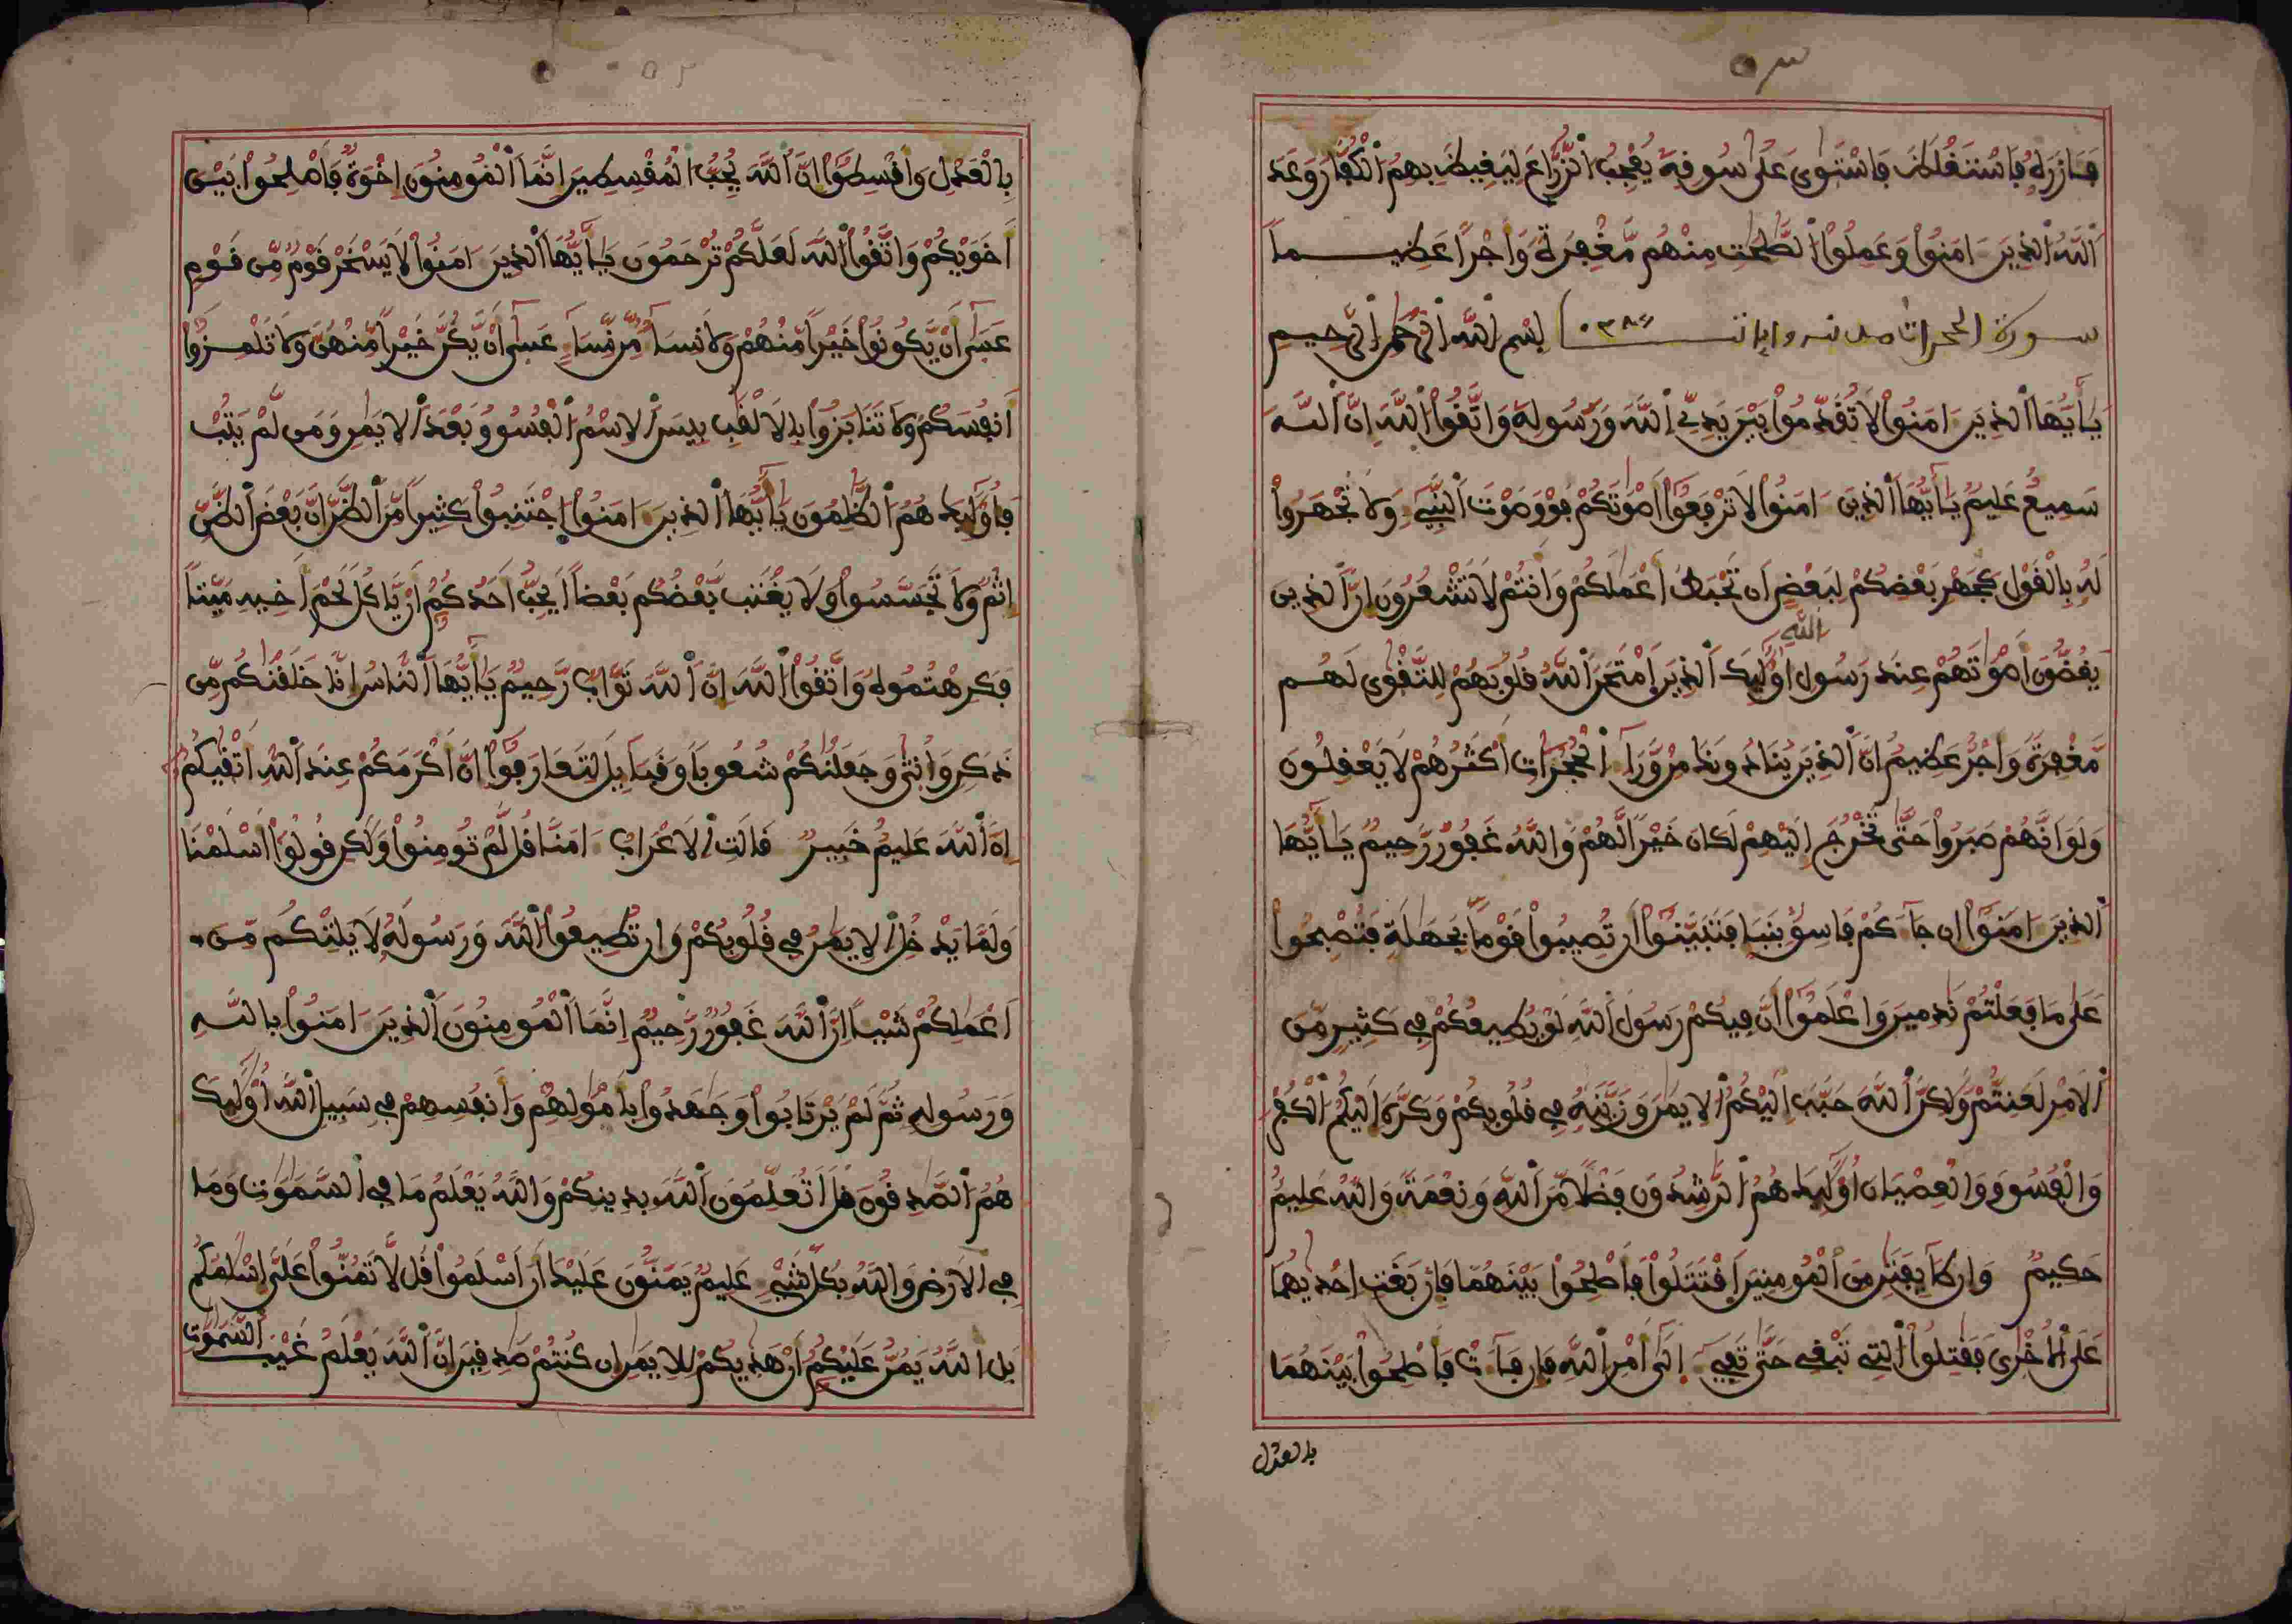 ٥٣
فَـَٔازَرَهُۥ فَاسْتَغْلَظَ فَاسْتَوٜىٰ عَلَىٰ سُوفِهِۦ يُعْجِبُ اُ۬لزُّرَّاعَ لِيَغِيظَ بِهِمُ اُ۬لْكُفَّارَ وَعَدَ
اَ۬للَّهُ اُ۬لذِينَ ءَامَنُواْ وَعَمِلُواْ اُ۬لصَّٰلِحَٰتِ مِنْهُم مَّغْفِرَةً وَأَجْراً عَظِيماً
سورة الحجرات مدنية وءاياتها بِسْمِ اِ۬للَّهِ اِ۬لرَّحْمَٰنِ اِ۬لرَّحِيمِ
يَٰٓأَيُّهَا اَ۬لذِينَ ءَامَنُواْ لَا تُقَدِّمُواْ بَيْنَ يَدَيِ اِ۬للَّهِ وَرَسُولِهِۦ وَاتَّقُواْ اُ۬للَّهَ إِنَّ اَ۬للَّهَ
سَمِيعٌ عَلِيمٌ يَٰٓأَيُّهَا اَ۬لذِينَ ءَامَنُواْ لَا تَرْفَعُوٓاْ أَصْوَٰتَكُمْ فَوْقَ صَوْتِ اِ۬لنَّبِيٓءِ وَلَا تَجْهَرُواْ
لَهُۥ بِالْقَوْلِ كَجَهْرِ بَعْضِكُمْ لِبَعْضٍ أَن تَحْبَطَ أَعْمَٰلُكُمْ وَأَنتُمْ لَا تَشْعُرُونَ إِنَّ اَ۬لذِينَ
يَغُضُّونَ أَصْوَٰتَهُمْ عِندَ رَسُولِ اِ۬للَّهِ أُوْلَٰٓئِكَ اَ۬لذِينَ اَ۪مْتَحَنَ اَ۬للَّهُ قُلُوبَهُمْ لِلتَّقْوٜىٰ لَهُم
مَّغْفِرَةٌ وَأَجْرٌ عَظِيمٌ إِنَّ اَ۬لذِينَ يُنَادُونَكَ مِنْ وَّرَآءِ اِ۬لْحُجُرَٰتِ أَكْثَرُهُمْ لَا يَعْقِلُونَ
وَلَوَ اَنَّهُمْ صَبَرُواْ حَتَّىٰ تَخْرُجَ إِلَيْهِمْ لَكَانَ خَيْراً لَّهُمْ وَاللَّهُ غَفُورٌ رَّحِيمٌ يَٰٓأَيُّهَا
اَ۬لذِينَ ءَامَنُوٓاْ إِن جَآءَكُمْ فَاسِقٌ بِنَبَإٍ فَتَبَيَّنُوٓاْ أَن تُصِيبُواْ قَوْماً بِجَهَٰلَةٍ فَتُصْبِحُواْ
عَلَىٰ مَا فَعَلْتُمْ نَٰدِمِينَ وَاعْلَمُوٓاْ أَنَّ فِيكُمْ رَسُولَ اَ۬للَّهِ لَوْ يُطِيعُكُمْ فِي كَثِيرٍ مِّنَ
اَ۬لَامْرِ لَعَنِتُّمْ وَلَٰكِنَّ اَ۬للَّهَ حَبَّبَ إِلَيْكُمُ اُ۬لِايمَٰنَ وَزَيَّنَهُۥ فِي قُلُوبِكُمْ وَكَرَّهَ إِلَيْكُمُ اُ۬لْكُفْرَ
وَالْفُسُوقَ وَالْعِصْيَانَ أُوْلَٰٓئِكَ هُمُ اُ۬لرَّٰشِدُونَ فَضْلاً مِّنَ اَ۬للَّهِ وَنِعْمَةً وَاللَّهُ عَلِيمٌ
حَكِيمٌ وَإِن طَآئِفَتَٰنِ مِنَ اَ۬لْمُومِنِينَ اَ۪قْتَتَلُواْ فَأَصْلِحُواْ بَيْنَهُمَا فَإِنۢ بَغَتِ اِحْدٜيٰهُمَا
عَلَى اَ۬لُاخْرٜىٰ فَقَٰتِلُواْ اُ۬لتِے تَبْغِے حَتَّىٰ تَفِےٓءَ اِلَىٰٓ أَمْرِ اِ۬للَّهِ فَإِن فَآءَتْ فَأَصْلِحُواْ بَيْنَهُمَا
بالعدل
٥٢
بِالْعَدْلِ وَأَقْسِطُوٓاْ إِنَّ اَ۬للَّهَ يُحِبُّ اُ۬لْمُقْسِطِينَ إِنَّمَا اَ۬لْمُومِنُونَ إِخْوَةٌ فَأَصْلِحُواْ بَيْنَ
أَخَوَيْكُمْ وَاتَّقُواْ اُ۬للَّهَ لَعَلَّكُمْ تُرْحَمُونَ يَٰٓأَيُّهَا اَ۬لذِينَ ءَامَنُواْ لَا يَسْخَرْ قَوْمٌ مِّن قَوْمٍ
عَسَىٰٓ أَنْ يَّكُونُواْ خَيْراً مِّنْهُمْ وَلَا نِسَآءٌ مِّن نِّسَآءٍ عَسَىٰٓ أَنْ يَّكُنَّ خَيْراً مِّنْهُنَّ وَلَا تَلْمِزُوٓاْ
أَنفُسَكُمْ وَلَا تَنَابَزُواْ بِالَالْقَٰبِ بِيسَ اَ۬لِاسْمُ اُ۬لْفُسُوقُ بَعْدَ اَ۬لِايمَٰنِ وَمَن لَّمْ يَتُبْ
فَأُوْلَٰٓئِكَ هُمُ اُ۬لظَّٰلِمُونَ يَٰٓأَيُّهَا اَ۬لذِينَ ءَامَنُواْ اُ۪جْتَنِبُواْ كَثِيراً مِّنَ اَ۬لظَّنِّ إِنَّ بَعْضَ اَ۬لظَّنِّ
إِثْمٌ وَلَا تَجَسَّسُواْ وَلَا يَغْتَب بَّعْضُكُم بَعْضاً اَيُحِبُّ أَحَدُكُمُ أَنْ يَّاكُلَ لَحْمَ أَخِيهِ مَيِّتاً
فَكَرِهْتُمُوهُ وَاتَّقُواْ اُ۬للَّهَ إِنَّ اَ۬للَّهَ تَوَّابٌ رَّحِيمٌ يَٰٓأَيُّهَا اَ۬لنَّاسُ إِنَّا خَلَقْنَٰكُم مِّن
ذَكَرٍ وَأُنثٜىٰ وَجَعَلْنَٰكُمْ شُعُوباً وَقَبَآئِلَ لِتَعَارَفُوٓاْ إِنَّ أَكْرَمَكُمْ عِندَ اَ۬للَّهِ أَتْقٜيٰكُمُ
إِنَّ اَ۬للَّهَ عَلِيمٌ خَبِيرٌ قَالَتِ اِ۬لَاعْرَابُ ءَامَنَّا قُل لَّمْ تُومِنُواْ وَلَٰكِن قُولُوٓاْ أَسْلَمْنَا
وَلَمَّا يَدْخُلِ اِ۬لِايمَٰنُ فِي قُلُوبِكُمْ وَإِن تُطِيعُواْ اُ۬للَّهَ وَرَسُولَهُۥ لَا يَلِتْكُم مِّنَ
اَعْمَٰلِكُمْ شَيْـٔاً إِنَّ اَ۬للَّهَ غَفُورٌ رَّحِيمٌ إِنَّمَا اَ۬لْمُومِنُونَ اَ۬لذِينَ ءَامَنُواْ بِاللَّهِ
وَرَسُولِهِۦ ثُمَّ لَمْ يَرْتَابُواْ وَجَٰهَدُواْ بِأَمْوَٰلِهِمْ وَأَنفُسِهِمْ فِي سَبِيلِ اِ۬للَّهِ أُوْلَٰٓئِكَ
هُمُ اُ۬لصَّٰدِقُونَ قُلَ اَتُعَلِّمُونَ اَ۬للَّهَ بِدِينِكُمْ وَاللَّهُ يَعْلَمُ مَا فِي اِ۬لسَّمَٰوَٰتِ وَمَا
فِي اِ۬لَارْضِ وَاللَّهُ بِكُلِّ شَےْءٍ عَلِيمٌ يَمُنُّونَ عَلَيْكَ أَنَ اَسْلَمُواْ قُل لَّا تَمُنُّواْ عَلَيَّ إِسْلَٰمَكُم
بَلِ اِ۬للَّهُ يَمُنُّ عَلَيْكُمُ أَنْ هَدٜيٰكُمْ لِلِايمَٰنِ إِن كُنتُمْ صَٰدِقِينَ إِنَّ اَ۬للَّهَ يَعْلَمُ غَيْبَ اَ۬لسَّمَٰوَٰتِ